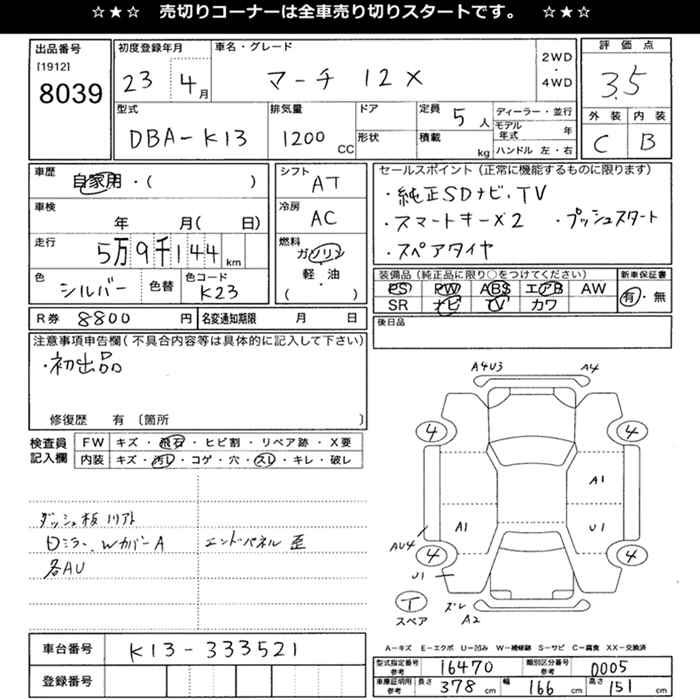 ☆★☆ 売切りコーナーは全車売り切りスタートです。 ☆★☆
出品番号
[1912]
8039
初度登録年月
23 4月
車名・グレード
マーチ 12X
2WD
・
4WD
評価点
3.5
外装 内装
C B
型式
DBA-K13
排気量
1200 CC
ドア
形状
定員 5人
積載 kg
ディーラー・並行
モデル年式 年
ハンドル 左・右
車歴
自家用・( )
車検
年 月( 日)
走行
5万9千144 km
色
シルバー
色替
色コード
K23
シフト
AT
冷房
AC
燃料
ガソリン
・
軽・油
( )
セールスポイント(正常に機能するものに限ります)
・純正SDナビ、TV
・スマートキー×2 ・プッシュスタート
・スペアタイヤ
装備品(純正品に限り○をつけてください)
PS PW ABS エアB AW
SR ナビ TV カワ
新車保証書
有・無
R券 8800 円
名変通知期限 月 日
後日品
注意事項申告欄(不具合内容等は具体的に記入して下さい)
・初出品
修復歴 有 〔箇所 〕
検査員
記入欄
FW キズ・飛石・ヒビ割・リペア跡・X要
内装 キズ・汚レ・コゲ・穴・スレ・キレ・破レ
ダッシュ板 リアト
Dミラー、WカバーA エンドパネル 歪
各AU
A4U3 A4
4 4
A1
A1 U1
AU4
4 4
U1
T
スペア
ズレ
A2
車台番号 K13-333521
登録番号
A-キズ E-エクボ U-凹み W-補修跡 S-サビ C-腐食 XX-交換済
型式指定番号
参考
16470
類別区分番号
参考
0005
車庫証明用
参考
長さ 378 cm 幅 166 cm 高さ 151 cm